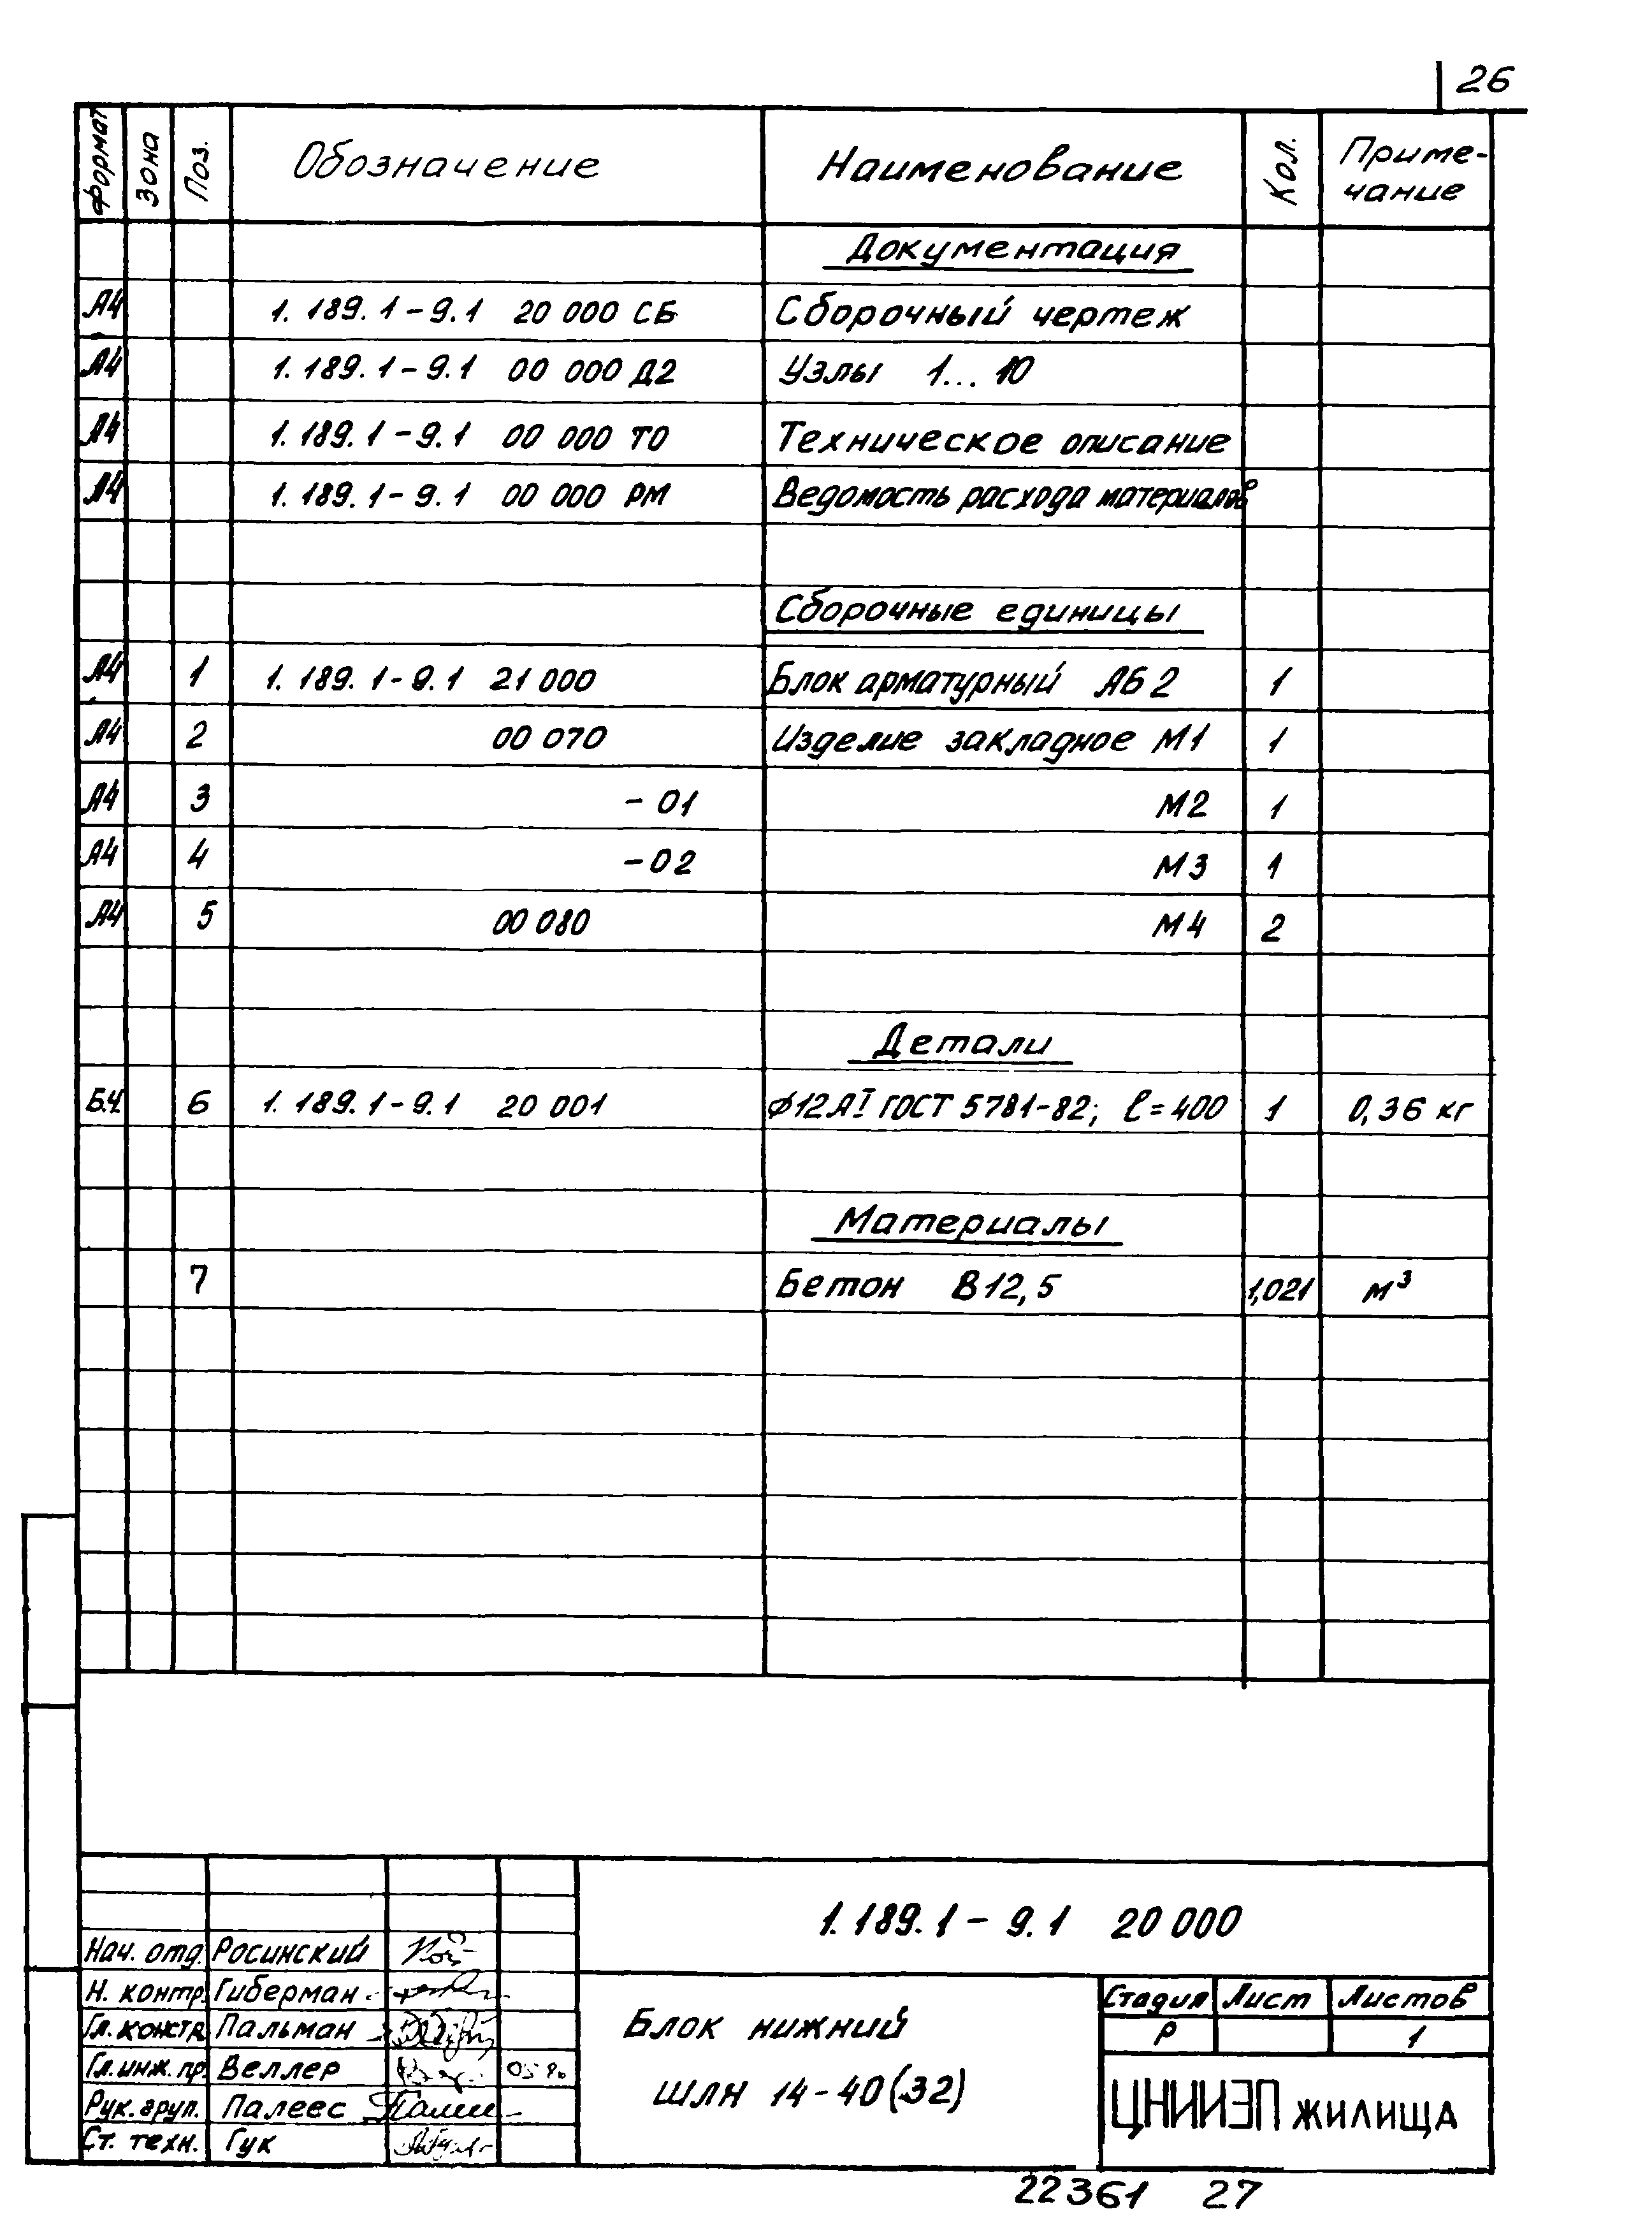 26
Формат Зона Поз. Обозначение Наименование Кол. Приме-
чание
Документация
А4 1.189.1-9.1 20 000 СБ Сборочный чертеж
А4 1.189.1-9.1 00 000 Д2 Узлы 1...10
А4 1.189.1-9.1 00 000 ТО Техническое описание
А4 1.189.1-9.1 00 000 РМ Ведомость расхода материалов
Сборочные единицы
А4 1 1.189.1-9.1 21 000 Блок арматурный АБ2 1
А4 2 00 070 Изделие закладное М1 1
А4 3 -01 М2 1
А4 4 -02 М3 1
А4 5 00 080 М4 2
Детали
Б.Ч. 6 1.189.1-9.1 20 001 ⌀12АI ГОСТ 5781-82; ℓ=400 1 0,36 кг
Материалы
7 Бетон В12,5 1,021 м³
1.189.1-9.1 20 000
Нач. отд. Росинский
Н. контр. Гиберман
Гл. констр. Пальман
Гл. инж. пр. Веллер 05.90
Рук. груп. Палеес
Ст. техн. Гук
Блок нижний
ШЛН 14-40(32)
Стадия Лист Листов
Р 1
ЦНИИЭП жилища
22361 27